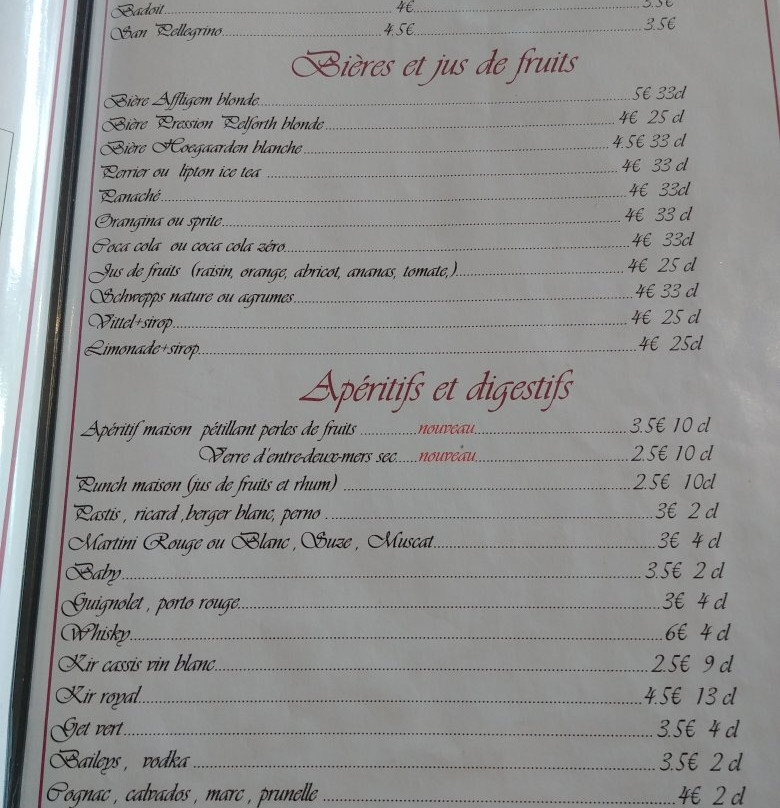 Badoit 4€ 3.5€
San Pellegrino 4.5€ 3.5€
Bières et jus de fruits
Bière Affligem blonde 5€ 33cl
Bière Pression Pelforth blonde 4€ 25 cl
Bière Hoegaarden blanche 4.5€ 33 cl
Perrier ou lipton ice tea 4€ 33 cl
Panaché 4€ 33cl
Orangina ou sprite 4€ 33 cl
Coca cola ou coca cola zéro 4€ 33cl
Jus de fruits (raisin, orange, abricot, ananas, tomate,) 4€ 25 cl
Schwepps nature ou agrumes 4€ 33 cl
Vittel+sirop 4€ 25 cl
Limonade+sirop 4€ 25cl
Apéritifs et digestifs
Apéritif maison pétillant perles de fruits nouveau 3.5€ 10 cl
Verre d'entre-deux-mers sec nouveau 2.5€ 10 cl
Punch maison (jus de fruits et rhum) 2.5€ 10cl
Pastis, ricard ,berger blanc, perno 3€ 2 cl
Martini Rouge ou Blanc , Suze , Muscat 3€ 4 cl
Baby 3.5€ 2 cl
Guignolet , porto rouge 3€ 4 cl
Whisky 6€ 4 cl
Kir cassis vin blanc 2.5€ 9 cl
Kir royal 4.5€ 13 cl
Get vert 3.5€ 4 cl
Baileys , vodka 3.5€ 2 cl
Cognac , calvados , marc , prunelle 4€ 2 cl